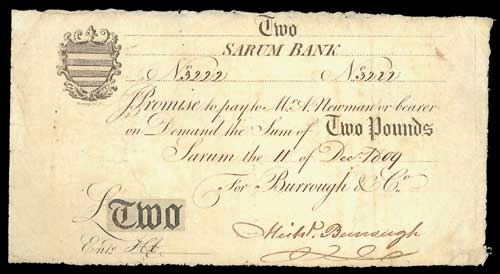 Two
SARUM BANK
No 3222 No 3222
I Promise to pay to Mr. A. Newman or bearer
on Demand the Sum of Two Pounds
Sarum the 11 of Decr. 1809
For Burrough & Co.
£ Two
Michl. Burrough
Entd.